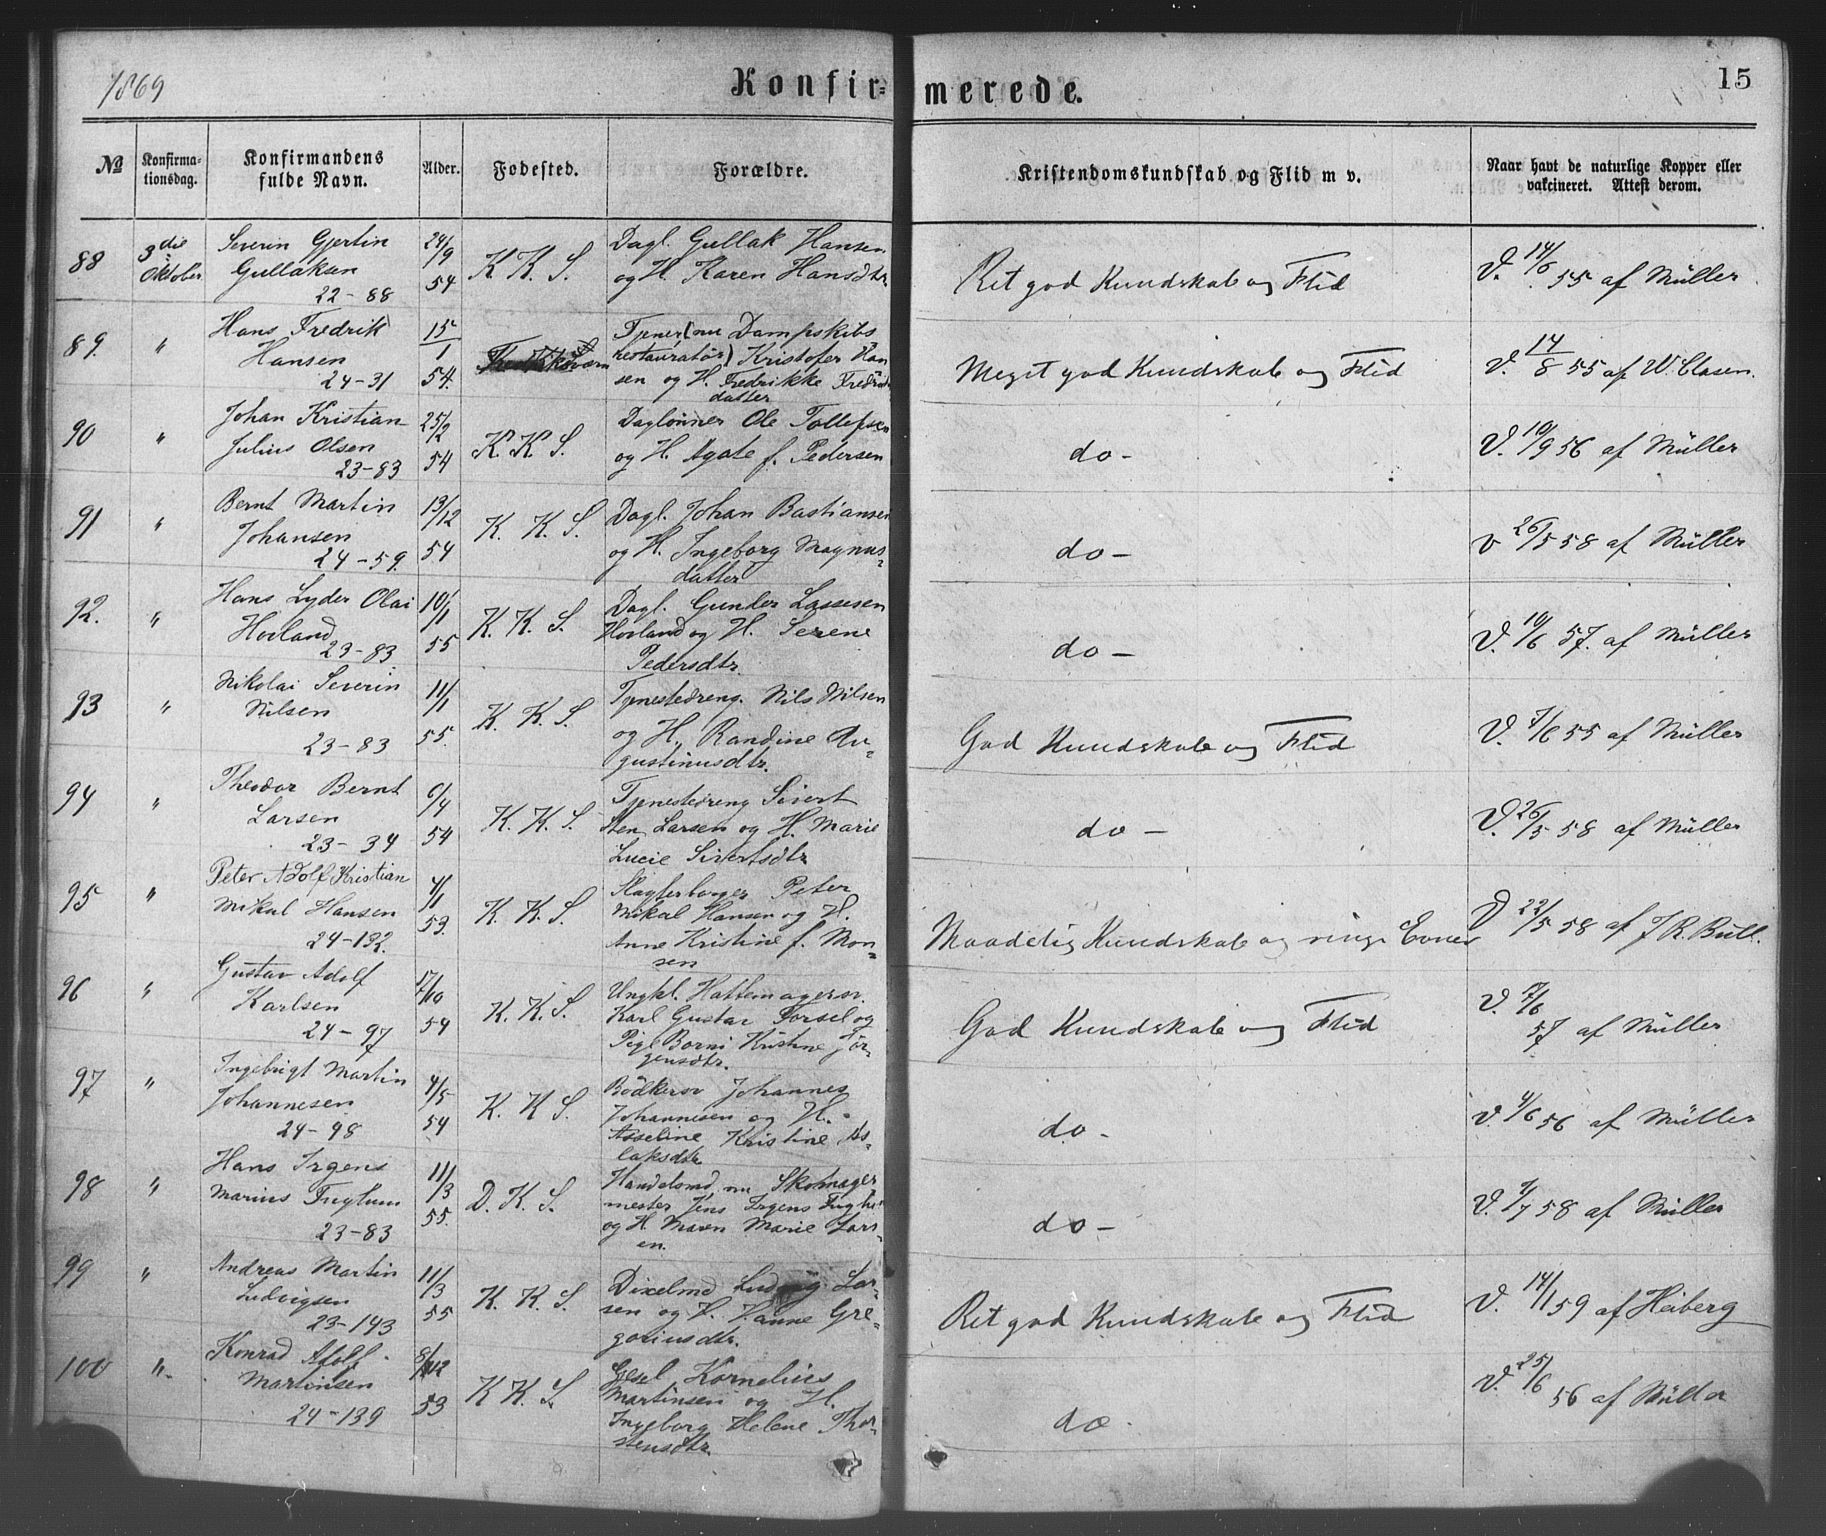 1869
Konfirmerede.
15
No
Konfirma-
tionsdag.
Konfirmandens
fulde Navn.
Alder.
Fødested.
Forældre.
Kristendomskundskab og Flid m v.
Naar havt de naturlige Kopper eller
vakcineret. Attest derom.
88 3die Severin Gjertin 24/9 K. K. S. Dagl. Gullak Hansen Ret god Kundskab og Flid V. 14/6 55 af Müller
Oktober Gullaksen 54 og H. Karen Hansdtr.
22-88
89. " Hans Fredrik 15/1 Tjener (nu Dampskibs Meget god Kundskab og Flid V. 14/8 55 af W. Clasen.
Hansen 54. restauratør) Kristofer Han
24-31 sen og H. Fredrikke Fredriks
datter
90 " Johan Kristian 25/2 K. K. S. Daglønner Ole Tollefsen do- V. 10/9 56 af Müller
Julius Olsen 54 og H. Agate f. Pedersen
23-83
91 " Bernt Martin 13/12 K. K. S. Dagl. Johan Bastiansen do- V 26/5 58 af Müller
Johansen 54 og H. Ingeborg Magnus=
24-59. datter
92. " Hans Lyder Olai 10/1 K. K. S. Dagl. Gunder Lassesen do- V. 10/6 57. af Müller
Hovland 55 Hovland og H. Serene
23-83 Pedersdtr.
93 " Nikolai Severin 11/1 K. K. S. Tjenestedreng. Nils Nilsen God Kundskab og Flid V. 7/6 55 af Müller
Nilsen 55. og H. Randine Au-
23-83 gustinusdtr.
94 " Theodor Bernt 6/4 K. K. S. Tjenestedreng Sivert do- V. 26/5 58 af Müller
Larsen 54 Sten Larsen og H. Marie
23-34 Lucie Sivertsdtr
95 " Peter Adolf Kristian 4/1 K. K. S. Slagterborger Peter Maadelig Kundskab og ringe Evner V 22/5 58 af J R. Bull.
Mikal Hansen 53. Mikal Hansen og H.
24-132. Anne Kristine f. Mon=
sen
96 " Gustav Adolf 17/10 K. K. S. Ungkl. Hattemagersv. God Kundskab og Flid V. 7/6
Karlsen 54 Karl Gustav Forsel og 57 af Müller
24-97 Pige Borni Kristine Jør-
gensdtr.
97 " Ingebrigt Martin 4/5 K. K S. Bødkersv Johannes do- V. 4/6 56 af Müller
Johannesen 54 Johannesen og H.
24-98 Asseline Kristine As-
laksdtr
98 " Hans Irgens 11/3 D. K. S. Handelsmd. nu Skomager do- V. 1/7 58 af Müller
Marius 55. mester Jens Irgens
23-83 og H. Maren Marie Lars-
en.
99 " Andreas Martin 11/3 K. K. S. Dixelmd Ludvig Lar- Ret god Kundskab og Flid V. 14/1 59 af Heiberg
Ludvigsen 55 sen og H. Hanne Gre-
23-143 goriusdtr.
100 " Konrad Adolf 8/12 K K. S. Gjesel Kornelius do. V. 25/6
Martinsen 53 Martinsen og H. 56 af Müller
24-139 Ingeborg Helene Thor-
stensdtr.